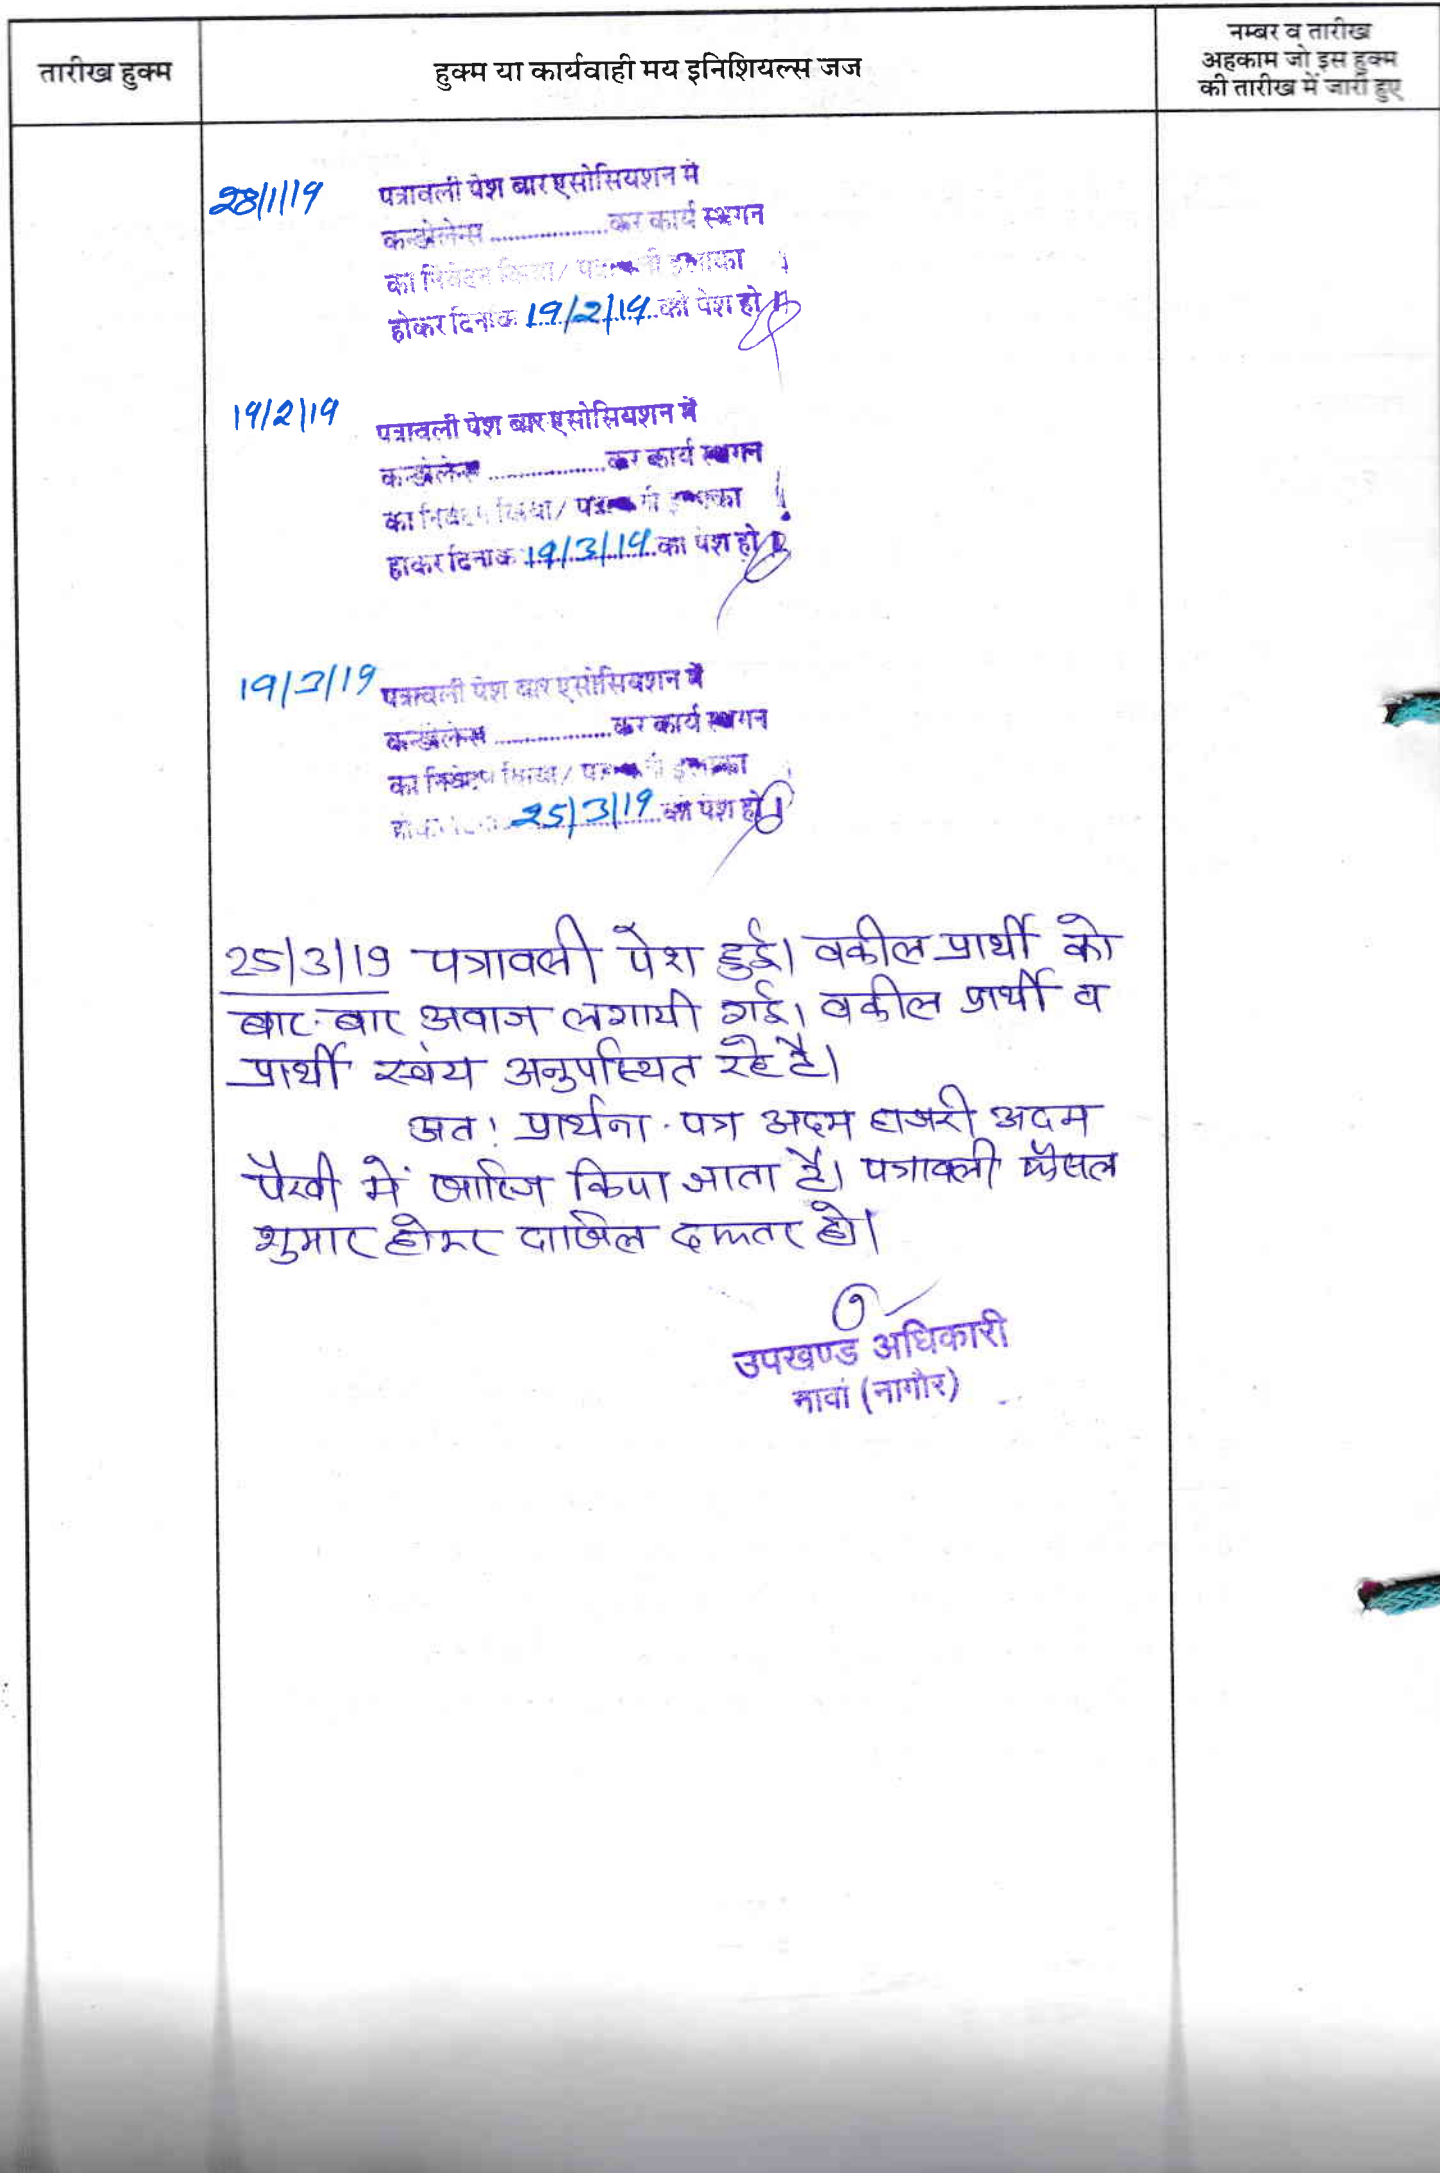 तारीख हुक्म
हुक्म या कार्यवाही मय इनिशियल्स जज
नम्बर व तारीख
अहकाम जो इस हुक्म
की तारीख में जारी हुए
28/1/19
पत्रावली पेश बार एसोसियशन में
कन्डोलेन्स ................... कर कार्य स्थगन
का निवेदन किया/
होकर दिनांक 19/2/19 को पेश हो।
19/2/19
पत्रावली पेश बार एसोसियशन में
कन्डोलेन्स ................... कर कार्य स्थगन
का निवेदन किया/
होकर दिनांक 19/3/19 को पेश हो।
19/3/19
पत्रावली पेश बार एसोसियशन में
कन्डोलेन्स ................... कर कार्य स्थगन
का निवेदन किया/
25/3/19 को पेश हो।
25/3/19 पत्रावली पेश हुई। वकील प्रार्थी को
बार-बार अवाज लगायी गई। वकील प्रार्थी व
प्रार्थी स्वंय अनुपस्थित रहे है।
अत: प्रार्थना-पत्र अदम हाजरी अदम
पैरवी में खारिज किया जाता है। पत्रावली फैसल
शुमार होकर दाखिल दफ्तर हो।
उपखण्ड अधिकारी
नावां (नागौर)